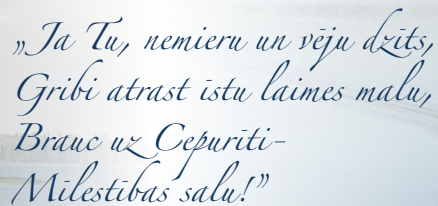 „Ja Tu, nemieru un vēju dzīts,
Gribi atrast īstu laimes malu,
Brauc uz Cepurīti-
Mīlestības salu!”